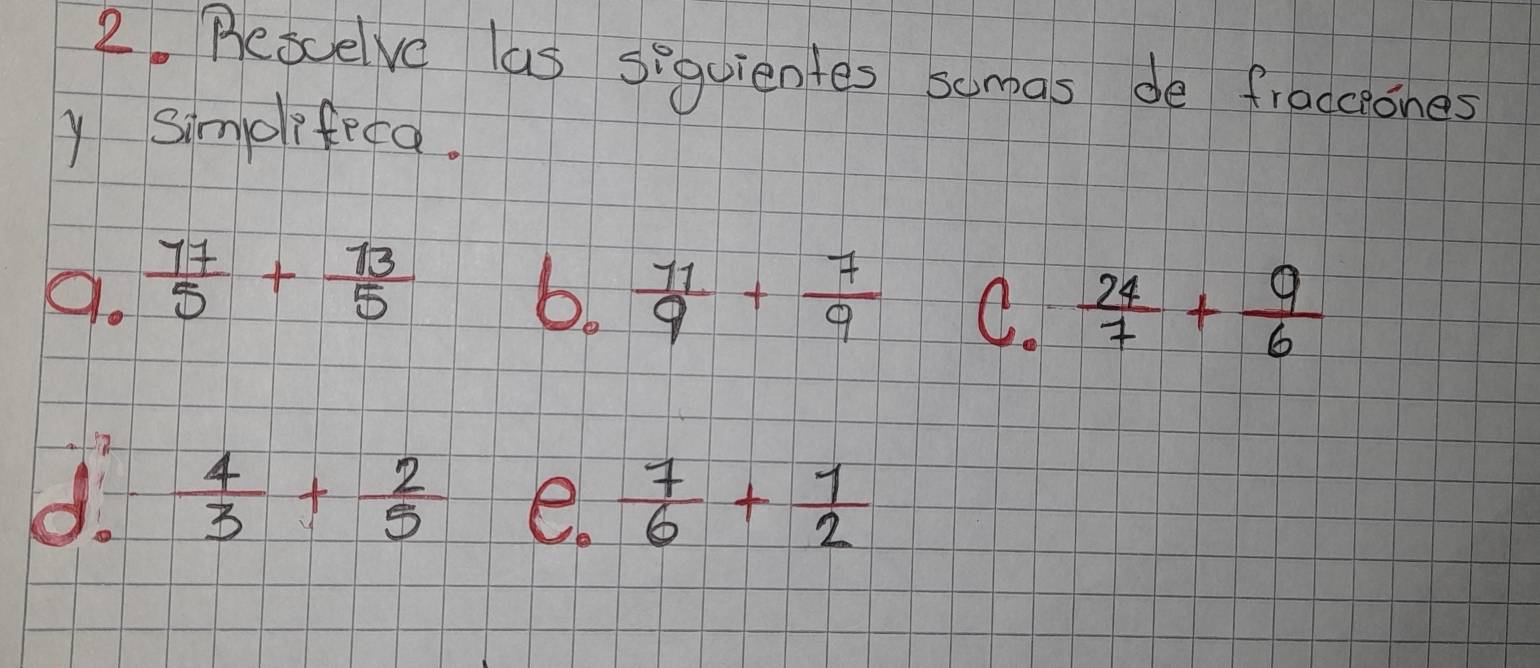 2. Resuelve las siguientes sumas de fracciónes
y simplifica.
a. 17/5 + 13/5 b. 11/9 + 7/9 c. 24/7 + 9/6
d. 4/3 + 2/5 e. 7/6 + 1/2